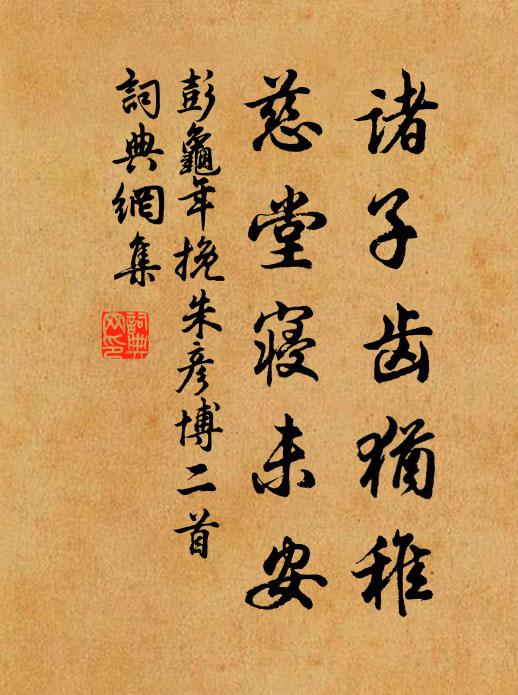 诸子齿犹稚
慈堂寝未安
彭龜年挽朱彦博二首
詞典網集
詞典網印